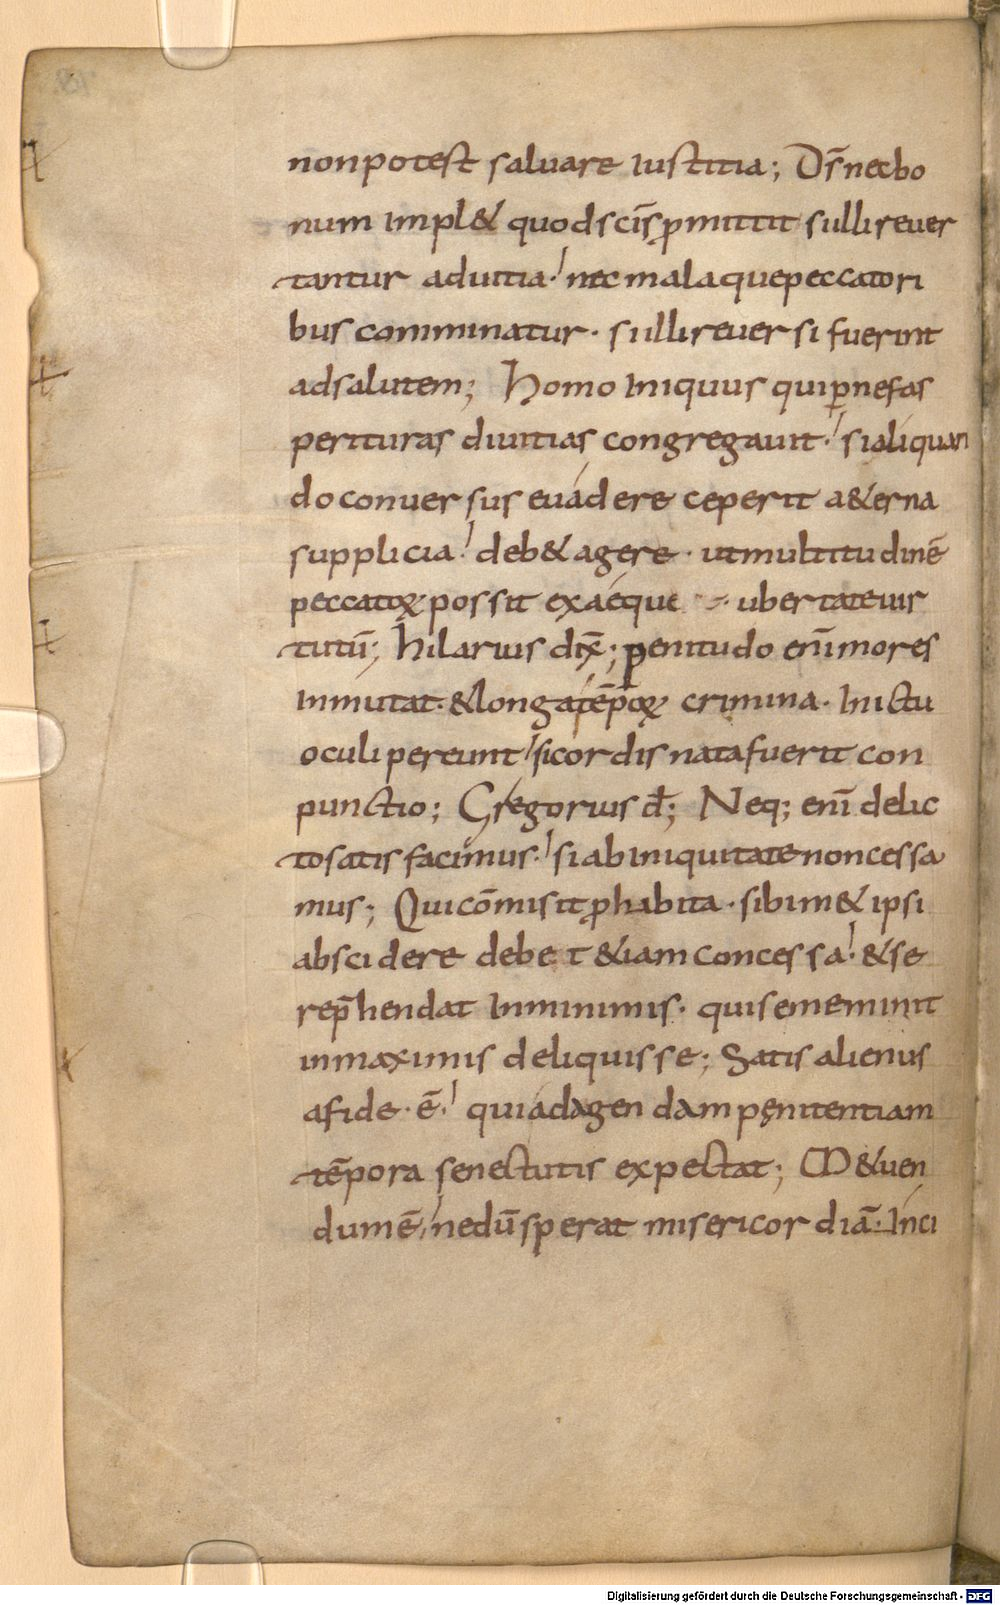 non potest saluare iustitia; Ds̄ nec bo
num impl& quod sc̄is p̄mittit si illi reuer
tantur ad uitia · nec mala que peccatori
bus comminatur · si illi reuersi fuerint
ad salutem; Homo iniquus qui ꝑ nefas
perituras diuitias congregauit · si aliquan
do conuersus euádere ceperit a&erna
supplicia deb& agere · ut multitudinē
peccatoꝝ possit exaéque · ubertate uir
tutū; hilarius dix̄; penitudo enī mores
inmutat · & longa tēpoꝝ crimina · In ictu
oculi pereunt si cordis nata fuerit con
punctio; Gregorius d̄; Neq; enī delic
to satis facimus · si ab iniquitate non cessa
mus; Qui cōmisit ꝓhibita · sibim& ipsi
abscidere debet &iam concessa · & se
rep̄hendat in minimis · qui se meminit
in maximis deliquisse; Satis alienus
a fide · ē · qui ad agendam pęnitentiam
tēpora senectutis expectat; M&uen
dum ē ne dū sperat misericordiā · Inci
Digitalisierung gefördert durch die Deutsche Forschungsgemeinschaft - DFG